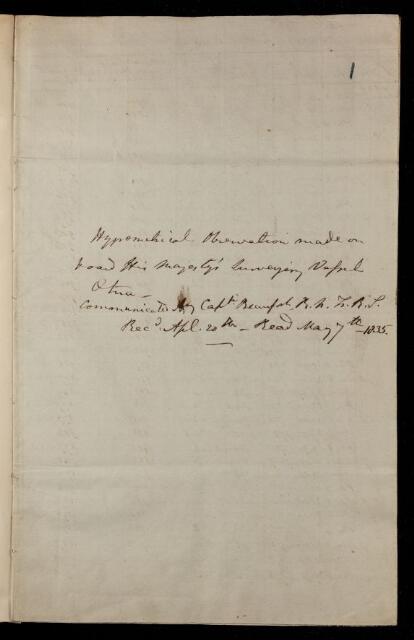 1
Hygrometrical Observations made on
board His Majesty's Surveying Vessel
Etna —
Communicated by Capt. Beaufort R. N. F. R. S.
Recd. Apl. 20th — Read May 7th — 1835.